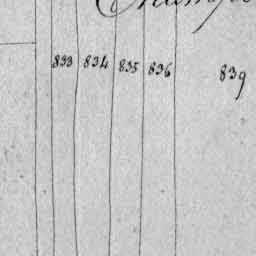 833 834 835 836 839